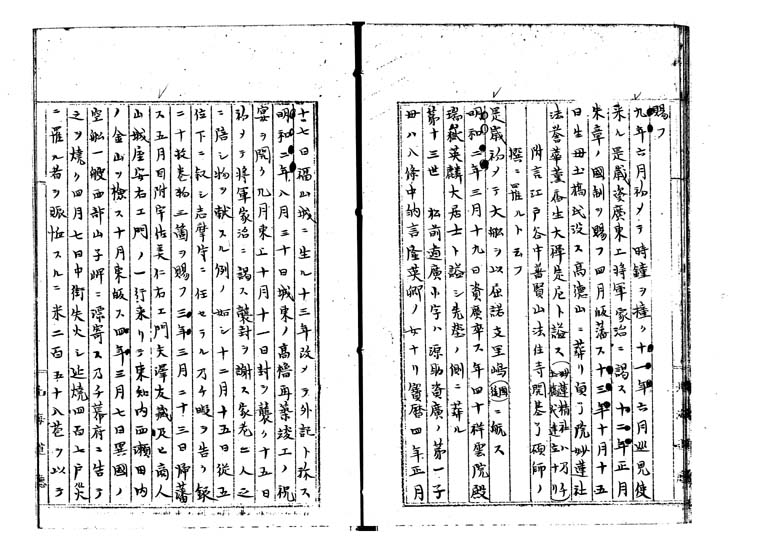 賜フ
九年六月初メテ時鐘ヲ撞ク十一年六月巡見使
来ル是歳資廣東エ将軍家治ニ謁ス十二年正月
朱章ノ国制ヲ賜フ四月皈藩ス十三年十月十五
日生母土橋氏没ス高徳山ニ葬リ頃了院妙蓮社
法誉華薹居生大禅定尼ト謚ス
附言江戸谷中普賢山法住寺開基了碩師ノ
撰ニ罹ルト云フ
是歳初メテ大船ヲ以屈諾支里嶋ニ航ス
明和二年三月十九日資廣卒ス年四十称雲院殿
瑞巌英麟大居士ト謚シ先塋ノ側ニ葬ル
第十三世 松前道廣小字ハ源助資廣ノ第一子
母ハ八條中納言隆英卿ノ女ナリ寳暦四年正月
十七日福山城ニ生ル十三年改メテ外記ト称ス
明和二年八月三十日城東ノ高櫓再築竣工ノ祝
宴ヲ開ク九月東エ十月十一日封ヲ襲ク十五日
初メテ将軍家治ニ謁ス襲封ヲ謝ス家老二人之
ニ陪シ物ヲ献スル例ノ如シ十二月十五日従五
位下ニ叙シ志摩守ニ任セラル乃チ暇ヲ告ク銀
二十枚巻物三箇ヲ賜フ三年三月二十三日帰藩
ス五月目附宇佐美仁右エ門矢澤友蔵及ヒ商人
山城屋安右エ門ノ一行来リテ東知内西瀬田内
ノ金山ヲ検ス十月東皈ス四年三月七日異國ノ
空船一艘西部山子岬ニ漂寄ス乃チ幕府ニ告テ
之ヲ焼ク四月七日中街失火シ延焼四百七戸災
ニ罹ル者ヲ賑恤スルニ米二百五十八苞ヲ以テ
北海道廳